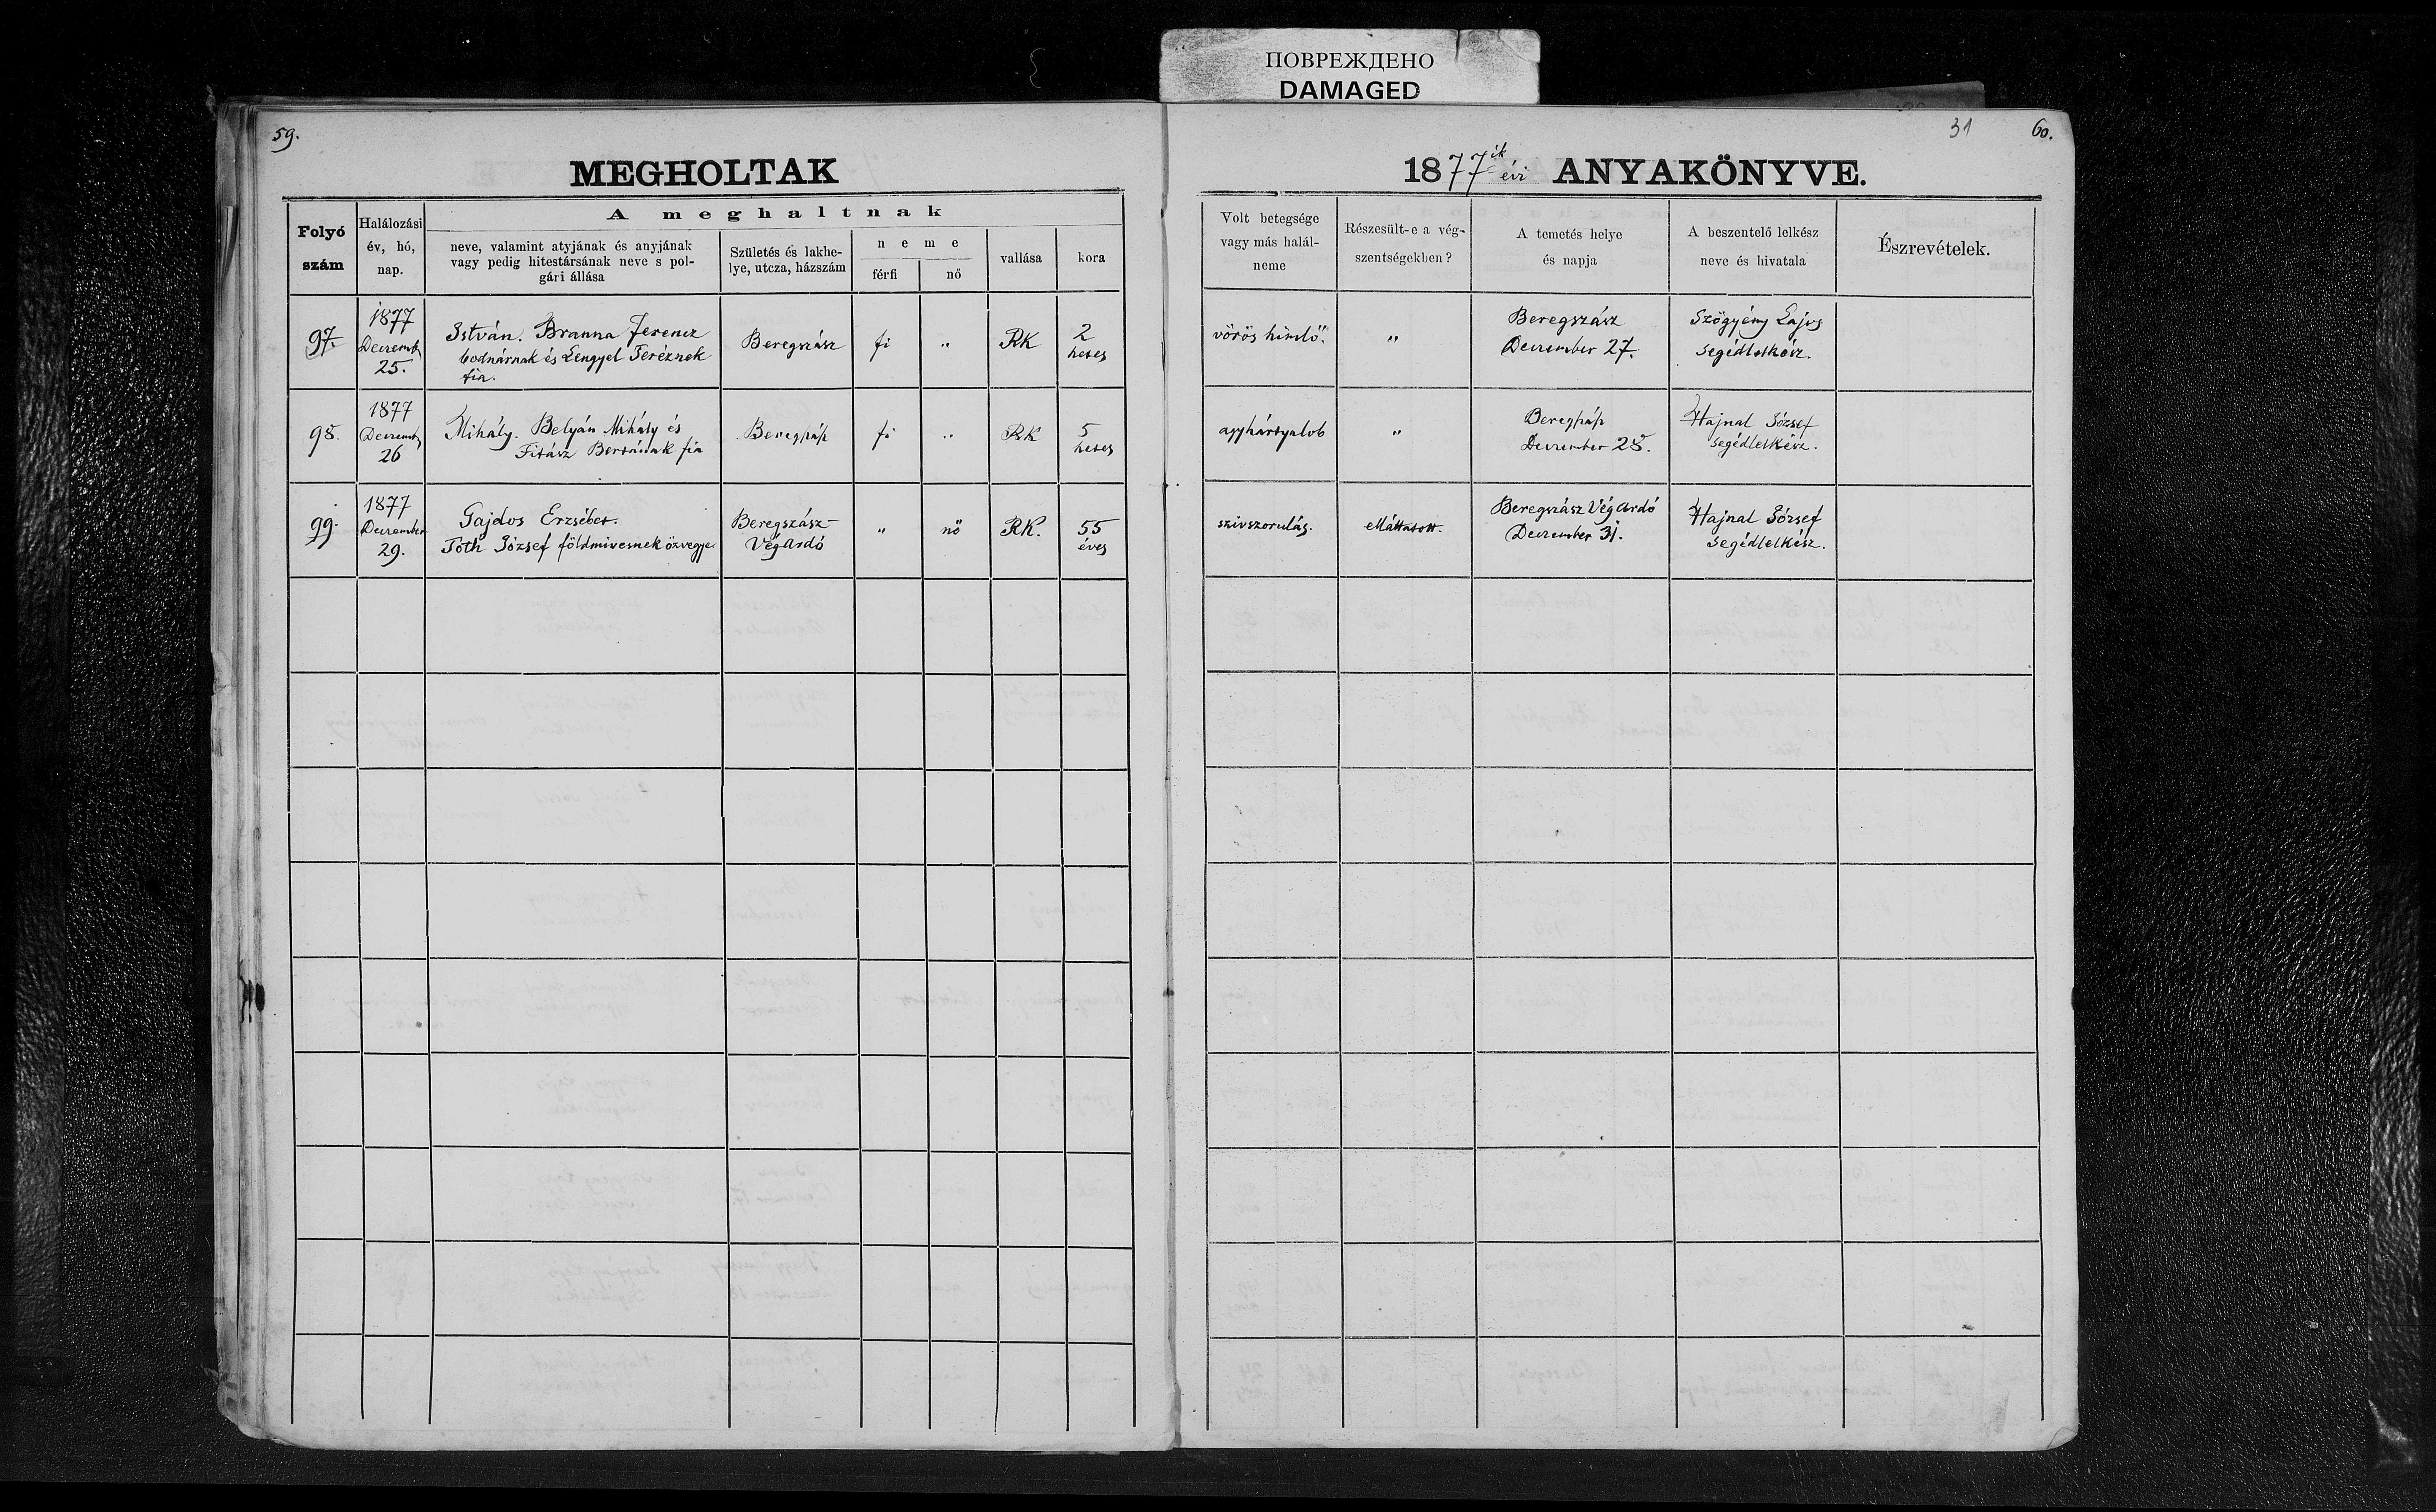 ПОВРЕЖДЕНО
DAMAGED
59.
MEGHOLTAK
Folyó szám
Halálozási év, hó, nap.
A meghaltnak
neve, valamint atyjának és anyjának
vagy pedig hitestársának neve s pol-
gári állása
Születés és lakhe-
lye, utcza, házszám
neme
férfi
nő
vallása
kora
97.
1877
Decemb.
25.
István. Branna Ferencz
bodnárnak és Lengyel Teréznek
fia.
Beregszász
fi
"
RK
2
hetes
98.
1877
Decemb.
26
Mihály. Belyán Mihály és
Fitász Bertának fia
Beregszász
fi
"
RK
5
hetes
99.
1877
December
29.
Gajdos Erzsébet.
Tóth József földmivesnek özvegye
Beregszász-
VégArdó
"
nő
RK.
55
éves
31
60.
1877ik évi ANYAKÖNYVE.
Volt betegsége
vagy más halál-
neme
Részesült-e a vég-
szentségekben?
A temetés helye
és napja
A beszentelő lelkész
neve és hivatala
Észrevételek.
vörös himlő.
"
Beregszász
December 27.
Szögyény Lajos
segédlelkész.
agyhártyalob
"
Beregszász
December 28.
Hajnal József
segédlelkész.
szivszorulás.
elláttatott.
Beregszász VégArdó
December 31.
Hajnal József
segédlelkész.